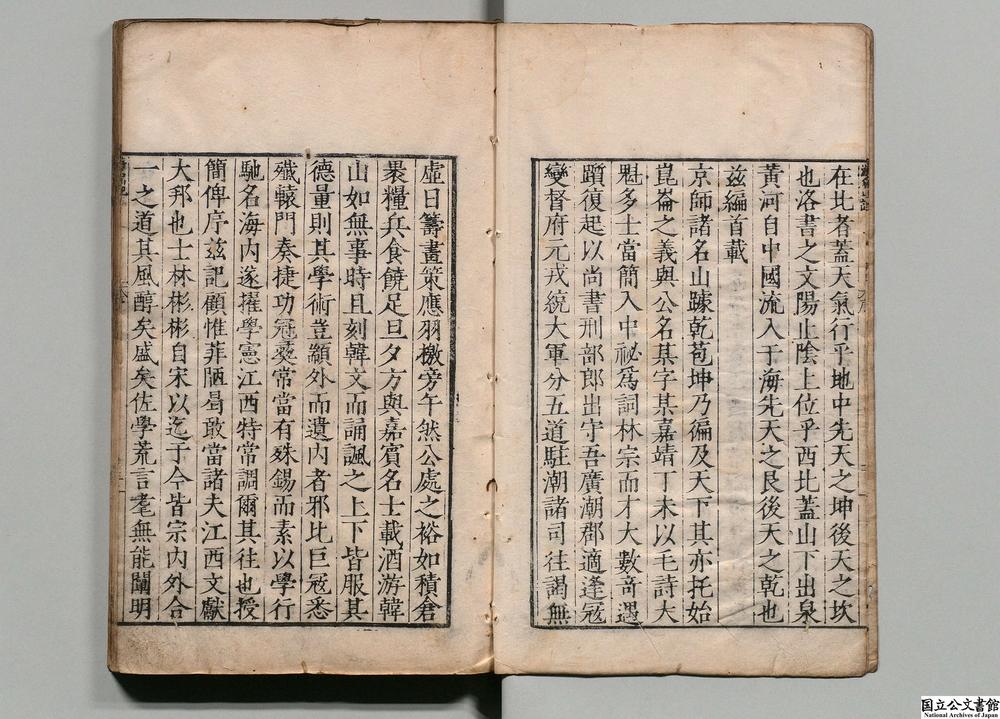 在北者蓋天氣行乎地中先天之坤後天之坎
也洛書之文陽止陰上位乎西北蓋山下出泉
黃河自中國流入于海先天之艮後天之乾也
茲編首載
京師諸名山躔乾苞坤乃徧及天下其亦托始
崑崙之義與公名某字某嘉靖丁未以毛詩大
魁多士當簡入中祕爲詞林宗而才大數竒遇
躓復起以尚書刑部郎出守吾廣潮郡適逢冦
變督府元戎統大軍分五道駐潮諸司往謁無
虛日籌畫策應羽檄旁午然公處之裕如積倉
褁糧兵食饒足旦夕方與嘉賓名士載酒游韓
山如無事時且刻韓文而誦諷之上下皆服其
德量則其學術豈顓外而遺內者邪比巨冦悉
殱轅門奏捷功冠羣常當有殊錫而素以學行
馳名海內遂擢學憲江西特常調爾其往也授
簡俾序茲記顧惟菲陋曷敢當諸夫江西文獻
大邦也士林彬彬自宋以迄于今皆宗內外合
一之道其風醇矣盛矣佐學荒言耄無能闡明
国立公文書館
National Archives of Japan